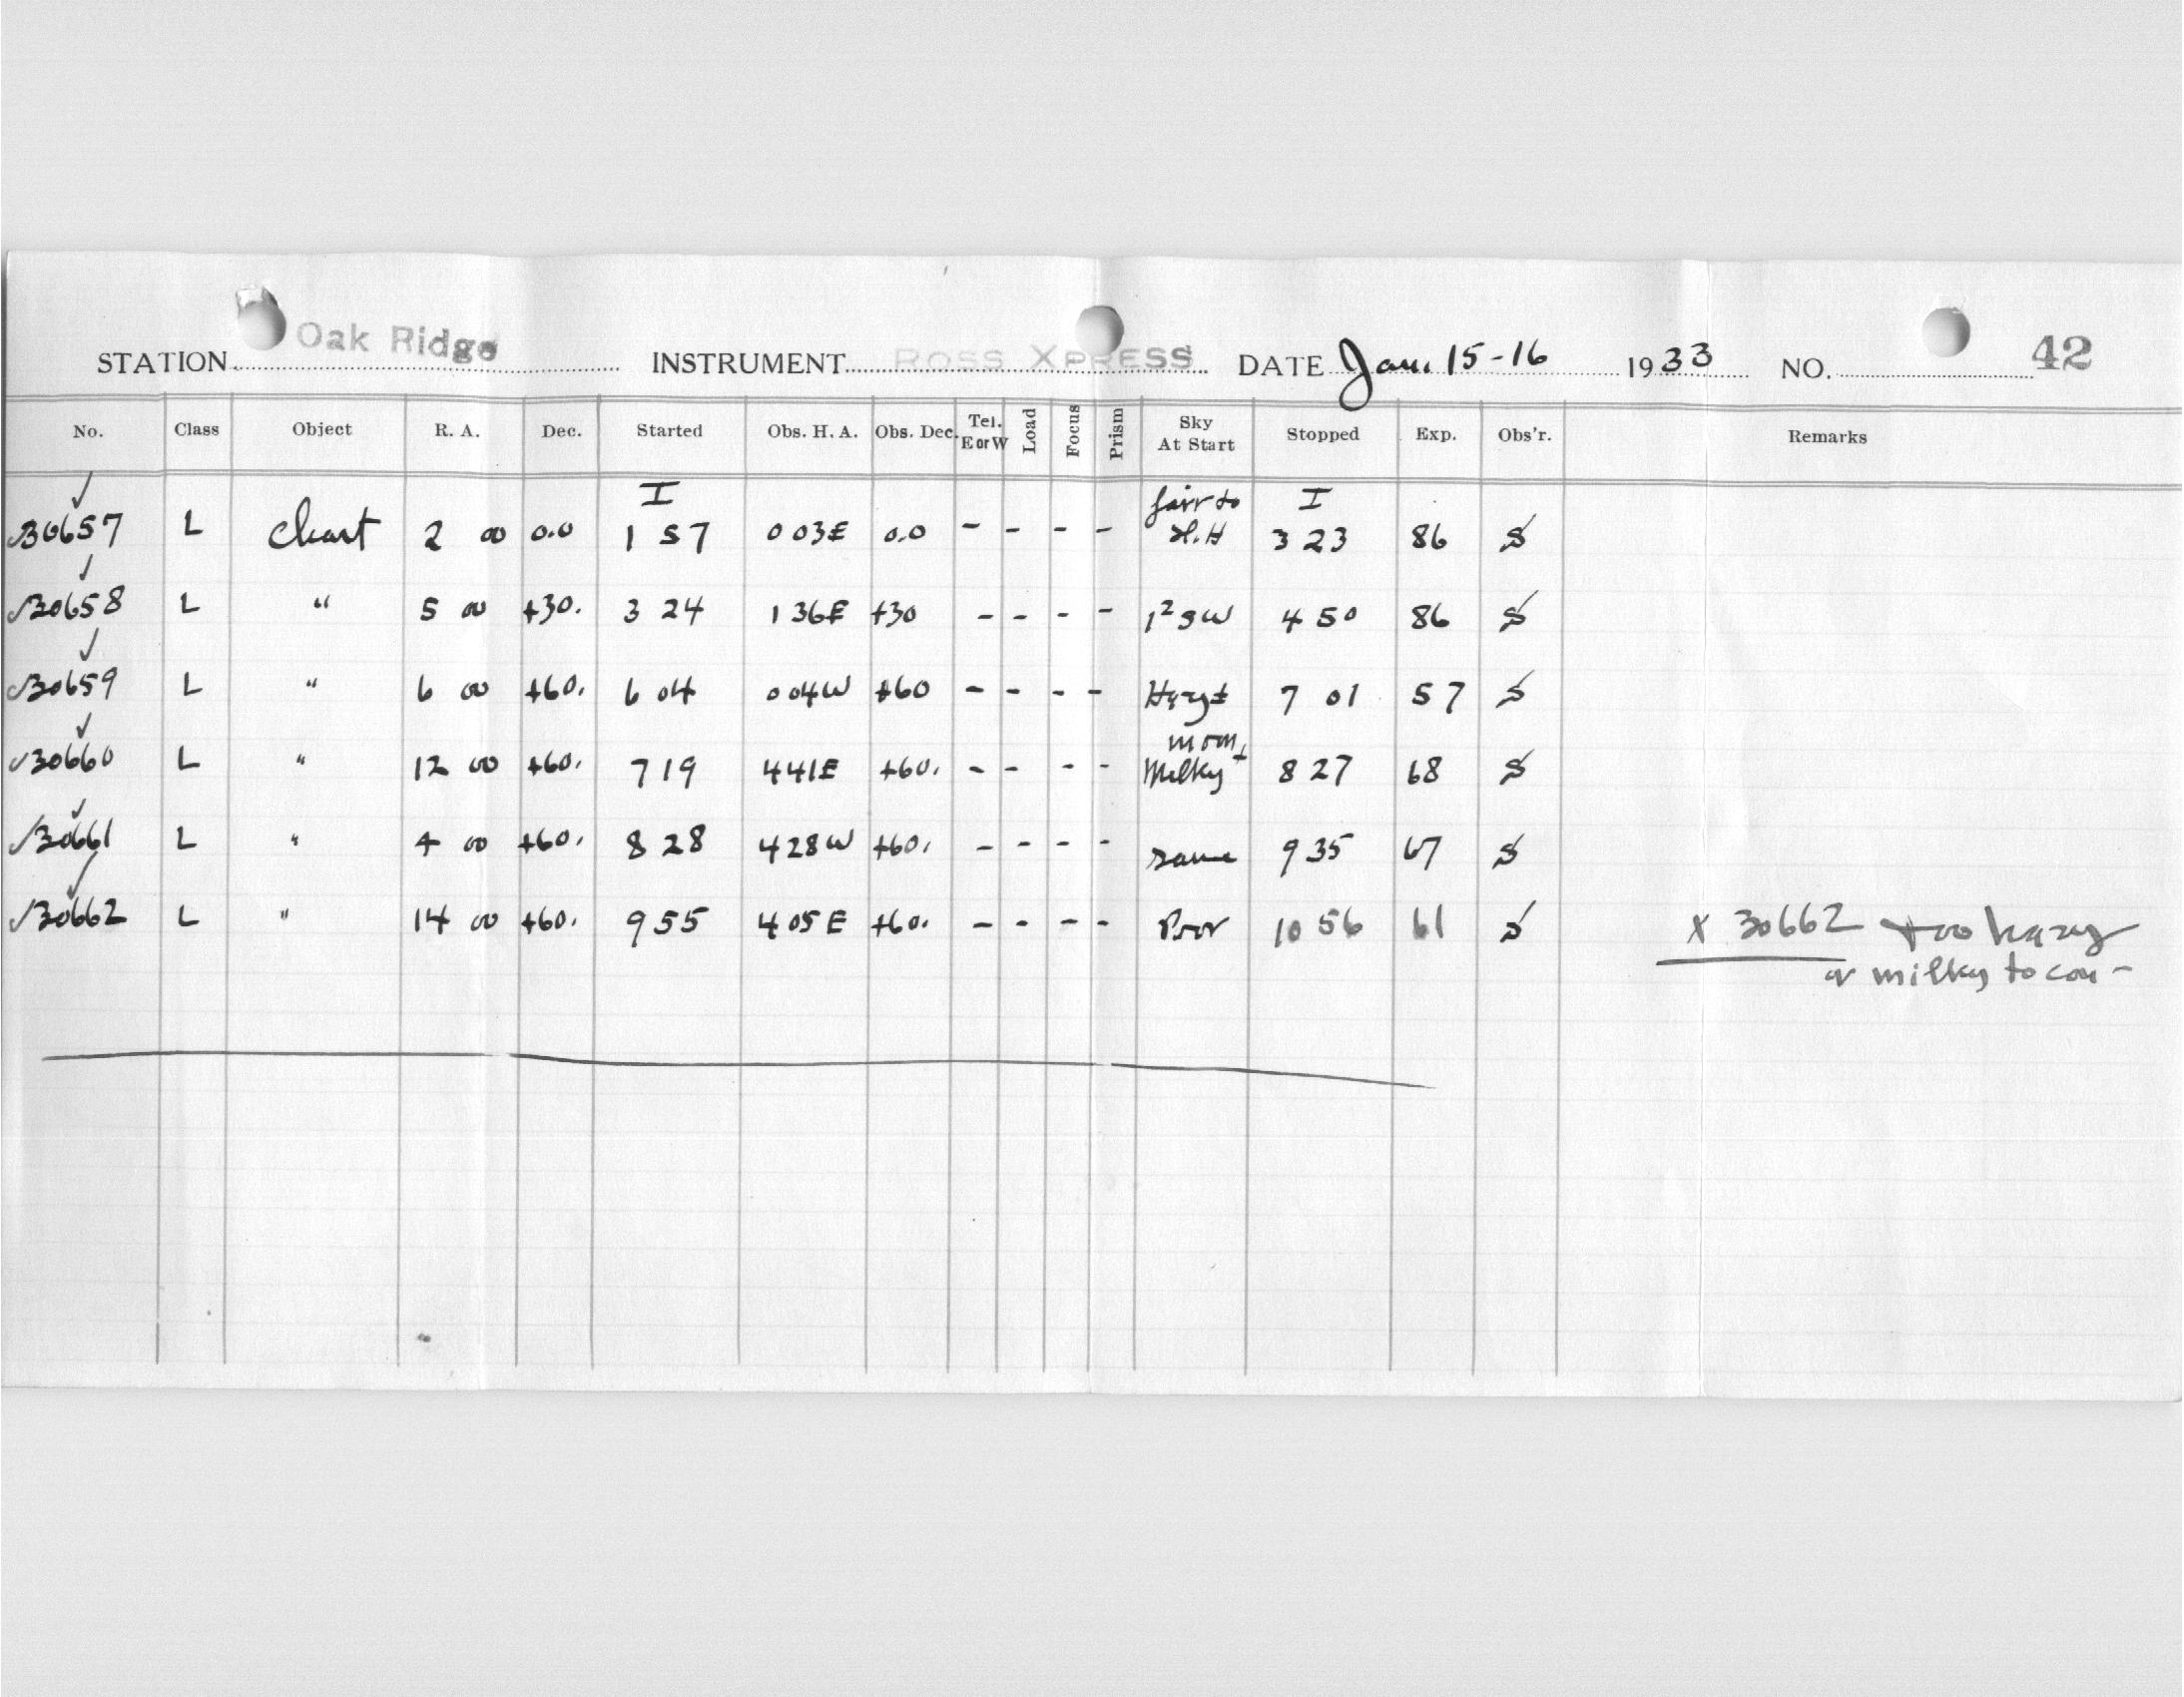 STATION Oak Ridge INSTRUMENT ROSS XPRESS DATE Jan. 15-16 1933 NO. 42
No. Class Object R. A. Dec. Started Obs. H. A. Obs. Dec. Tel. E or W Load Focus Prism Sky At Start Stopped Exp. Obs'r. Remarks
I fair to I
30657 L Chart 2 00 0.0 1 57 0 03E 0.0 - - - - H.H 3 23 86 S
30658 L " 5 00 +30. 3 24 1 36E +30 - - - - 4 50 86 S
30659 L " 6 00 +60. 6 04 0 04W +60 - - - - Hazy± 7 01 57 S
30660 L " 12 00 +60. 7 19 4 41E +60. - - - - moon± Milky 8 27 68 S
30661 L " 4 00 +60. 8 28 4 28W +60. - - - - same 9 35 67 S
30662 L " 14 00 +60. 9 55 4 05 E +60. - - - - Poor 10 56 61 S X 30662 too hazy
or milky to con-